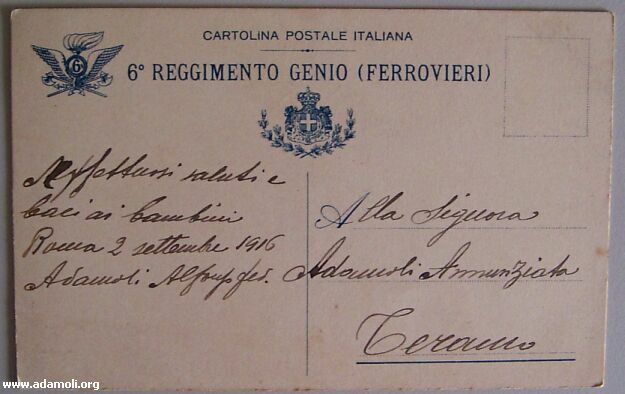 CARTOLINA POSTALE ITALIANA
6
6° REGGIMENTO GENIO (FERROVIERI)
Affettuosi saluti e
baci ai bambini
Roma 2 settembre 1916
Adamoli
Alla Signora
Adamoli Annunziata
Teramo
www.adamoli.org